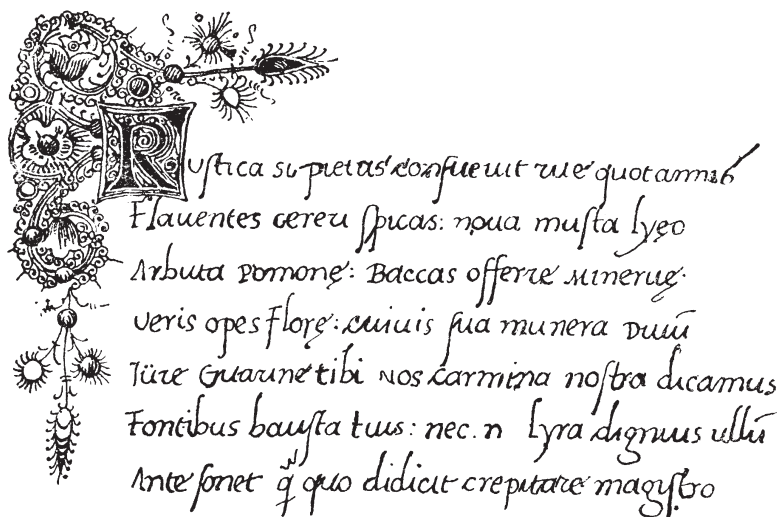 Ruſtica si pietas conſueuit rite quotannis
Flauentes cereri ſpicas: noua muſta lyęo
Arbuta pomonę: Baccas offerre Mineruę.
Veris opes Florę: cuiuis ſua munera Diuū
Iure Guarine tibi nos carmina noſtra dicamus
Fontibus hauſta tuis: nec. n lyra dignius ullū
Ante ſonet q̃ quo didicit crepitare magiſtro